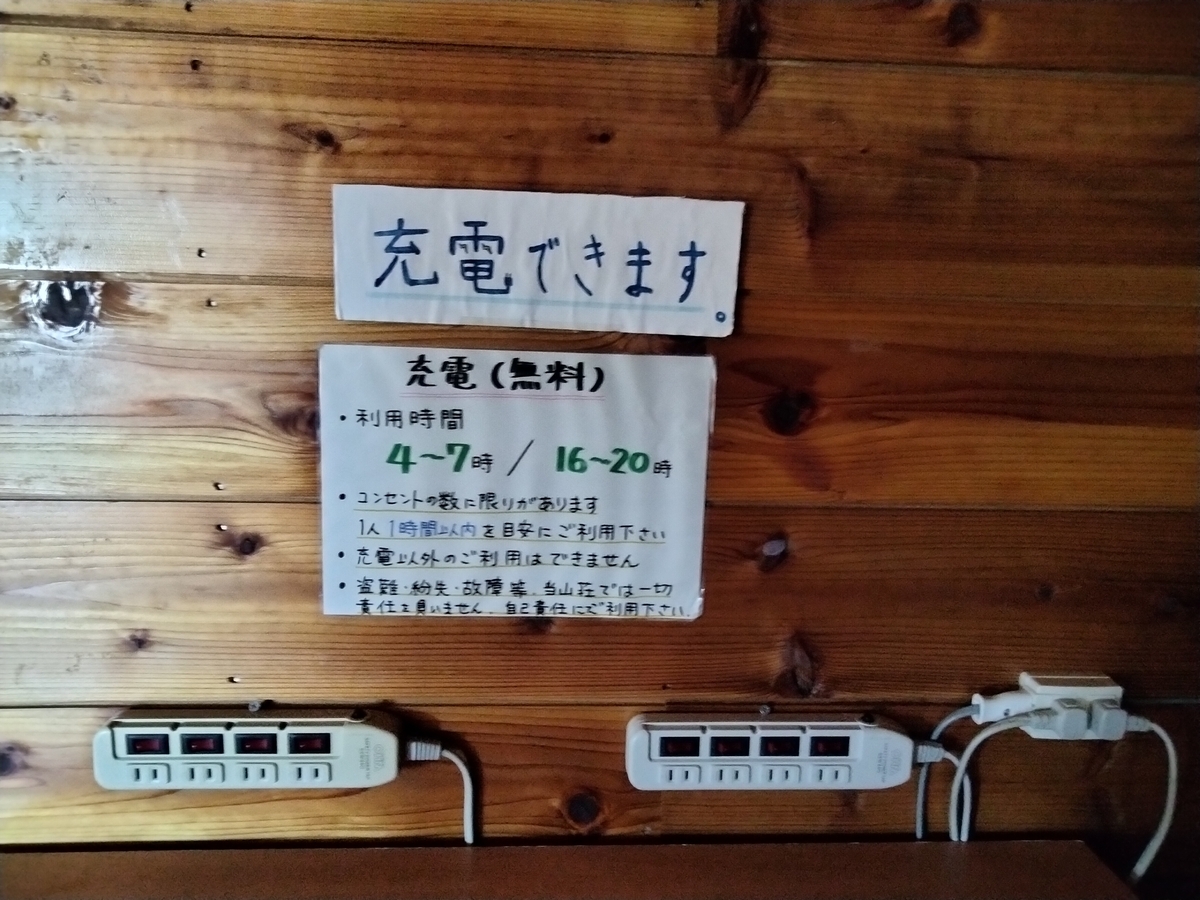 充電できます。
充電(無料)
・利用時間
4～7時 / 16～20時
・コンセントの数に限りがあります
1人1時間以内を目安にご利用下さい
・充電以外のご利用はできません
・盗難・紛失・故障等、当山荘では一切
責任を負いません。自己責任にてご利用下さい。